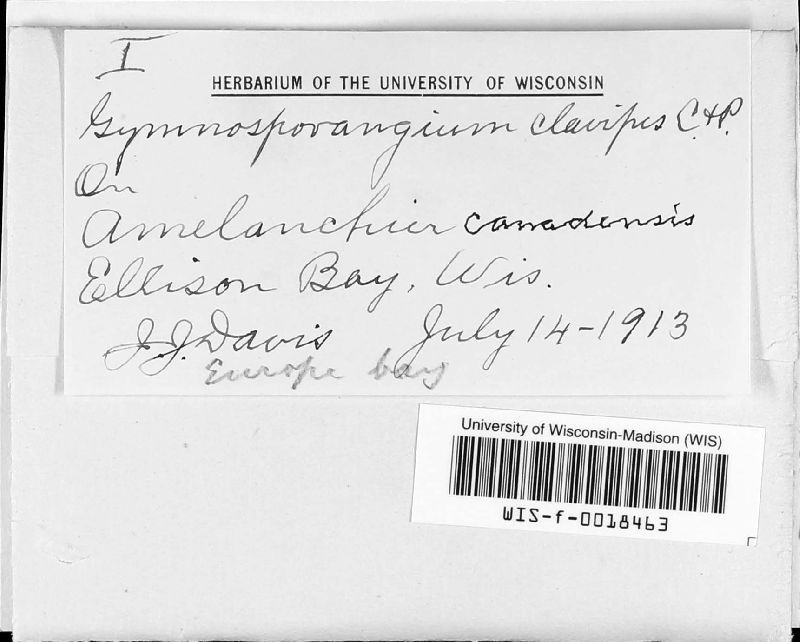 I
HERBARIUM OF THE UNIVERSITY OF WISCONSIN
Gymnosporangium clavipes C.&P.
On
Amelanchier canadensis
Ellison Bay, Wis.
J.J. Davis July 14-1913
Europe bay
University of Wisconsin-Madison (WIS)
WIS-f-0018463